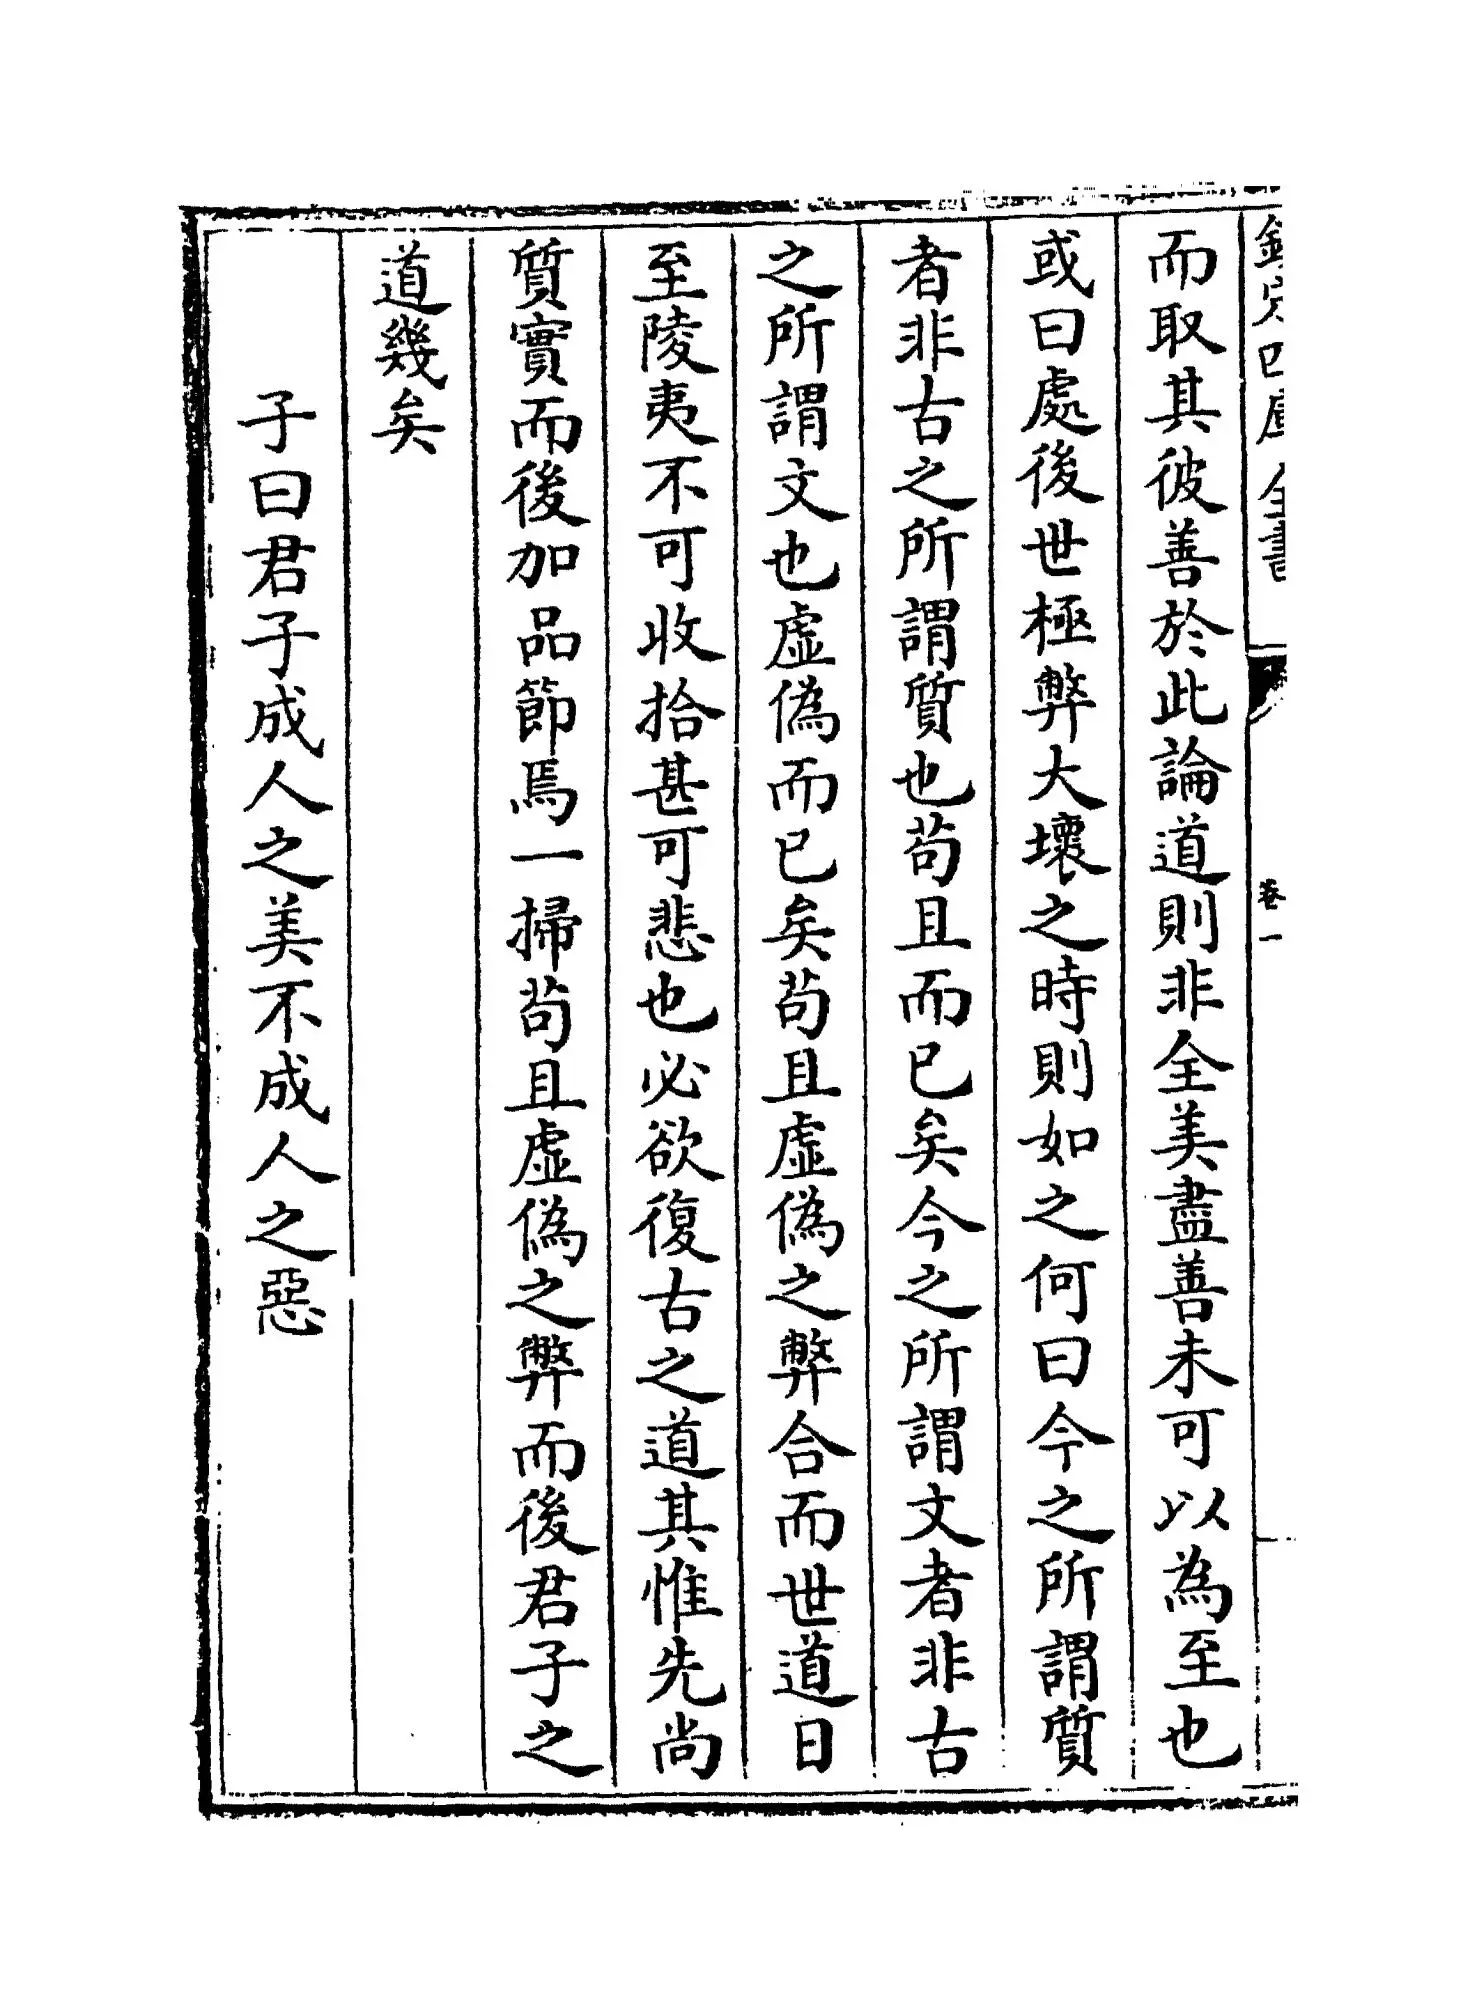 欽定四庫全書
卷一
而取其彼善於此論道則非全美盡善未可以為至也
或曰處後世極弊大壞之時則如之何曰今之所謂質
者非古之所謂質也苟且而已矣今之所謂文者非古
之所謂文也虛偽而已矣苟且虛偽之弊合而世道日
至陵夷不可收拾甚可悲也必欲復古之道其惟先尚
質實而後加品節焉一掃苟且虛偽之弊而後君子之
道幾矣
子曰君子成人之美不成人之惡